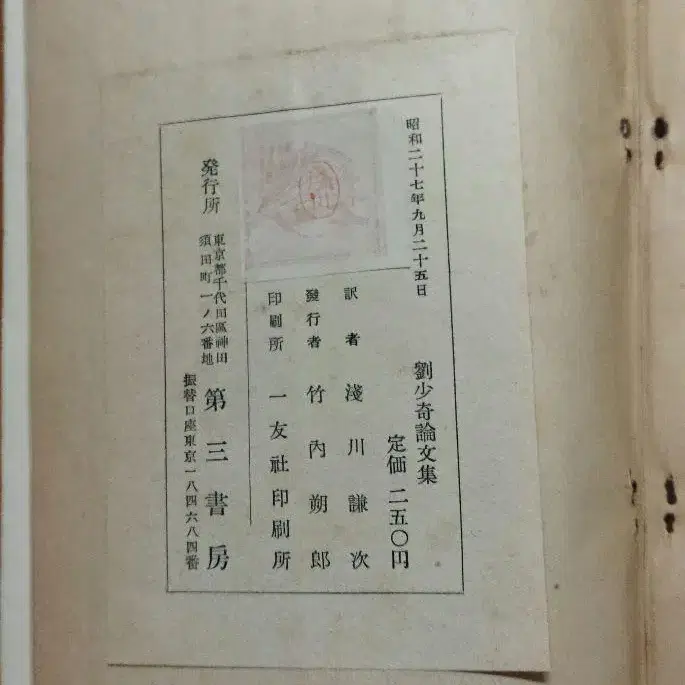 昭和二十七年九月二十五日
劉少奇論文集
定価 二五〇円
訳者 淺川謙次
發行者 竹内朔郎
印刷所 一友社印刷所
発行所
東京都千代田區神田
須田町一ノ六番地
第三書房
振替口座東京一八四六八四番